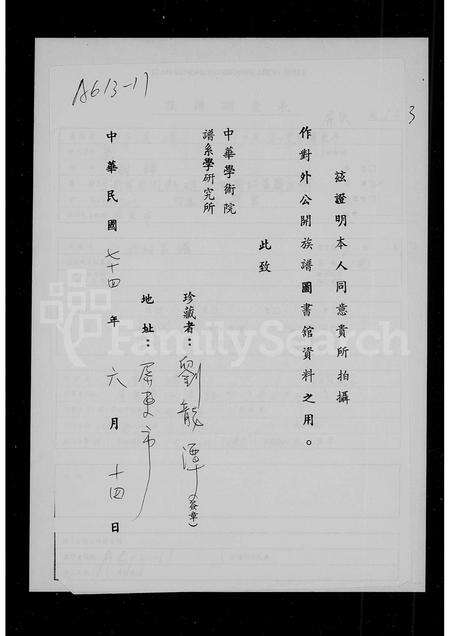 A613-11
3
茲證明本人同意貴所拍攝
作對外公開族譜圖書館資料之用。
此致
中華學術院
譜系學研究所
珍藏者：劉龍潭（簽章）
地址：屏東市
中華民國七十四年六月十四日
FamilySearch